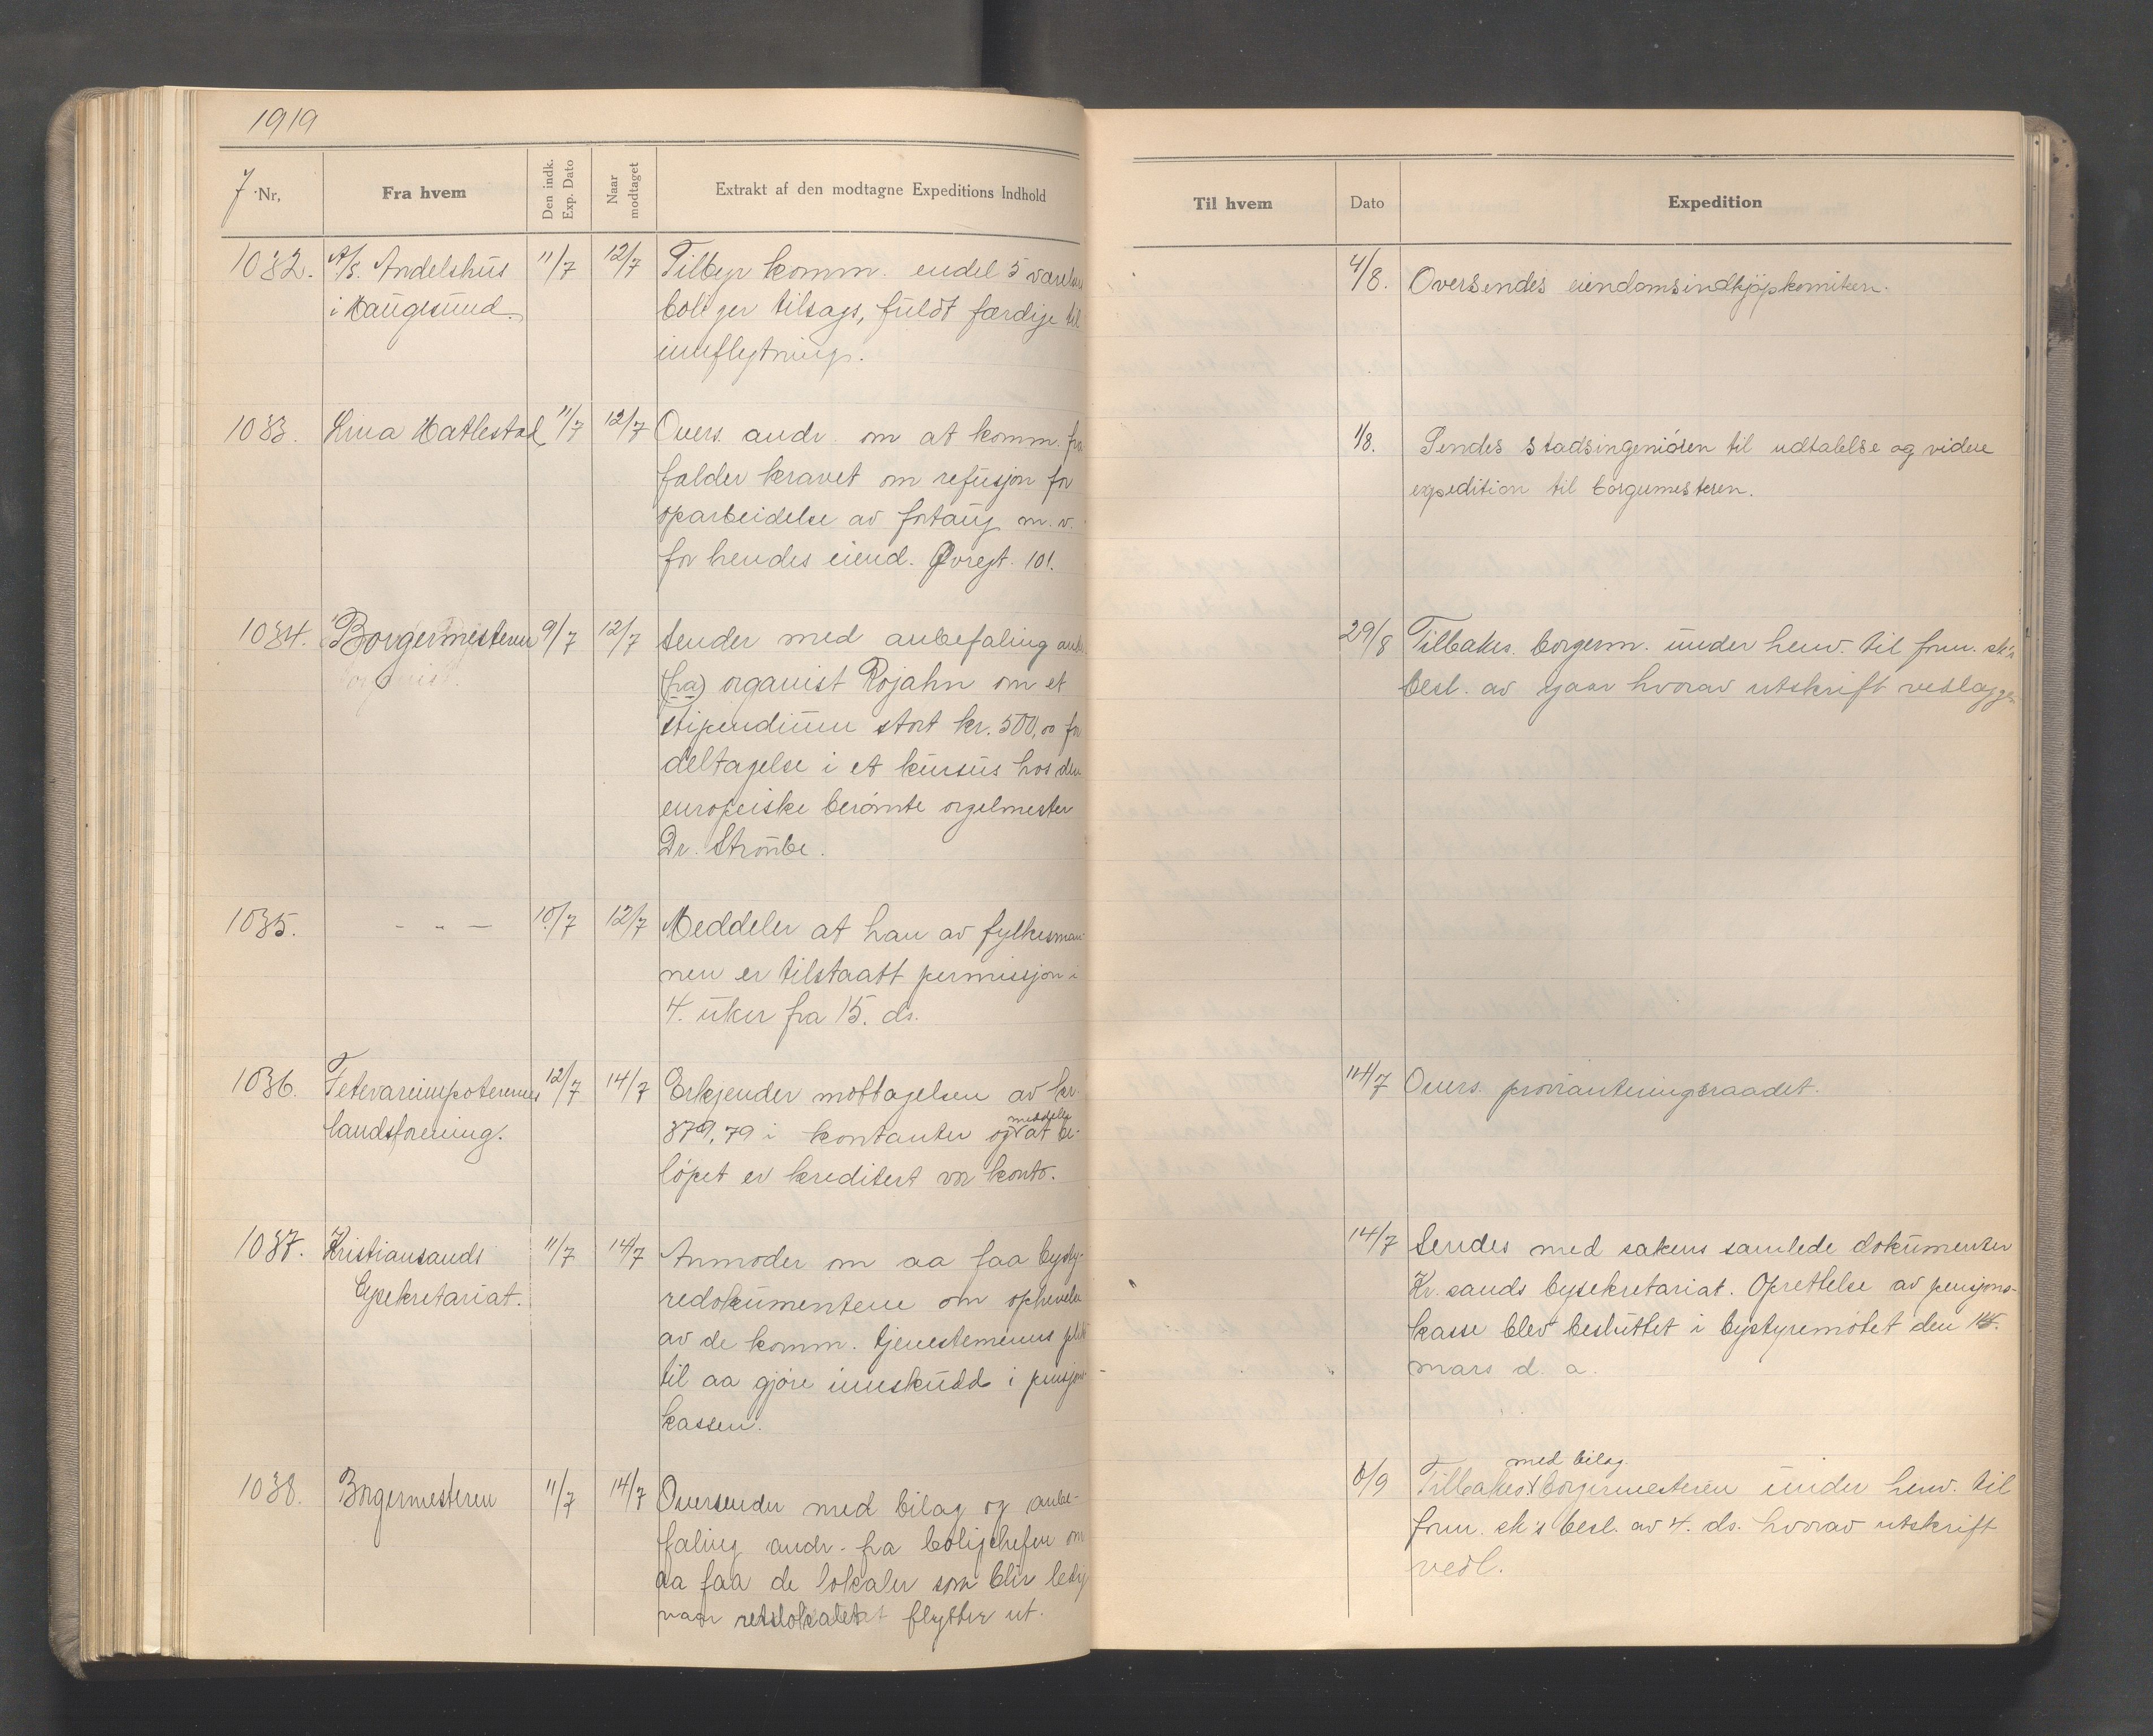 1919
7. Nr,
Fra hvem
Den indk. Exp. Dato
Naar modtaget
Extrakt af den modtagne Expeditions Indhold
1032. A/S. Andelshus 11/7 12/7 Tilbyr komm. endel 5 værelses
i Haugesund. boliger tilsags, fuldt færdige til
indflytning.
1033. Lina Hatlestad 11/7 12/7 Overs. andr. om at komm. fra
falder kravet om refusjon for
oparbeidelse av fortaug m. v.
for hendes eiend. Øvregt. 101.
1034. Borgermesteren 9/7 12/7 Sender med anbefaling andr.
(fra) organist Rojahn om et
stipendium stort kr. 500,00 for
deltagelse i et kursus hos den
europeiske berømte orgelmester
Dr. Straube.
1035. - " - 10/7 12/7 Meddeler at han av fylkesman-
nen er tilstaatt permissjon i
4. uker fra 15. ds.
1036. Fetevareimpotørenes 12/7 14/7 Erkjender mottagelsen av kr.
landsforening. 379,79 i kontanter og meddeler at be-
løpet er kreditert vor konto.
1037. Kristiansands 11/7 14/7 Anmoder om aa faa bysty-
bysekretariat. redokumentene om ophevelse
av de komm. tjenestemenns plikt
til aa gjøre innskudd i pensjons-
kassen.
1038. Borgermesteren 11/7 14/7 Oversender med bilag og anbe-
faling andr. fra boligchefen om
aa faa de lokaler som blir ledig
naar retslokalet flytter ut.
Til hvem
Dato
Expedition
4/8. Oversendes eiendomsindkjøpkomiteen.
1/8. Sendes stadsingeniøren til udtalelse og videre
expedition til borgermesteren.
29/8 Tilbakes. borgerm. under henv. til form. sk's
besl. av igaar hvorav utskrift vedlægges
14/7 Overs. provianteringsraadet.
14/7 Sendes med sakens samlede dokumenter
Kr. sands bysekretariat. Oprettelse av pensjons-
kasse blev besluttet i bystyremøtet den 14.
mars d. a.
6/9 Tilbakes. med bilag borgermesteren under henv. til
form. sk's besl. av 4. ds. hvorav utskrift
vedl.